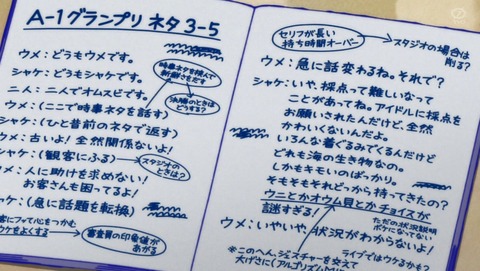 A-1グランプリ ネタ 3-5
ウメ:どうもウメです。
シャケ:どうもシャケです。
二人:二人でオムスビです。
ウメ:(ここで時事ネタを話す)
シャケ:(ひと昔前のネタで返す)
ウメ:古いよ!全然関係ないよ!
シャケ:(観客にふる)
ウメ:人に助けを求めない!
お客さんも困ってるよ!
ケ:(急に話題を転換)
時事ネタを挟んで
新鮮さをだす
決勝のときは
どうする?
スタジオの
ときは?
客にフって心をつかむ
ウケをよくする
審査員の印象値が
あがる
セリフが長い
持ち時間オーバー
スタジオの場合は
削る?
ウメ:急に話変わるね。それで?
シャケ:いや、採点って難しいなって
ことがあってね。アイドルに採点を
お願いされたんだけど、全然
かわいくないんだよ。
いろんな着ぐるみでくるんだけど
どれも海の生き物なの。
しかもキモいのばっかり。
そもそもそれどっから持ってきたの?
ウニとかオウム貝とかチョイスが
謎すぎる!
ただの状況説明
ボケになってない
ウメ:いやいや、状況がわからないよ!
*このへん、ジェスチャーを交えて
大げさに(アルゴリズム
ライブではウケるかも